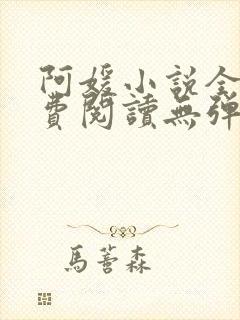 阿媛小說全
費閱讀無彈
馬薈森